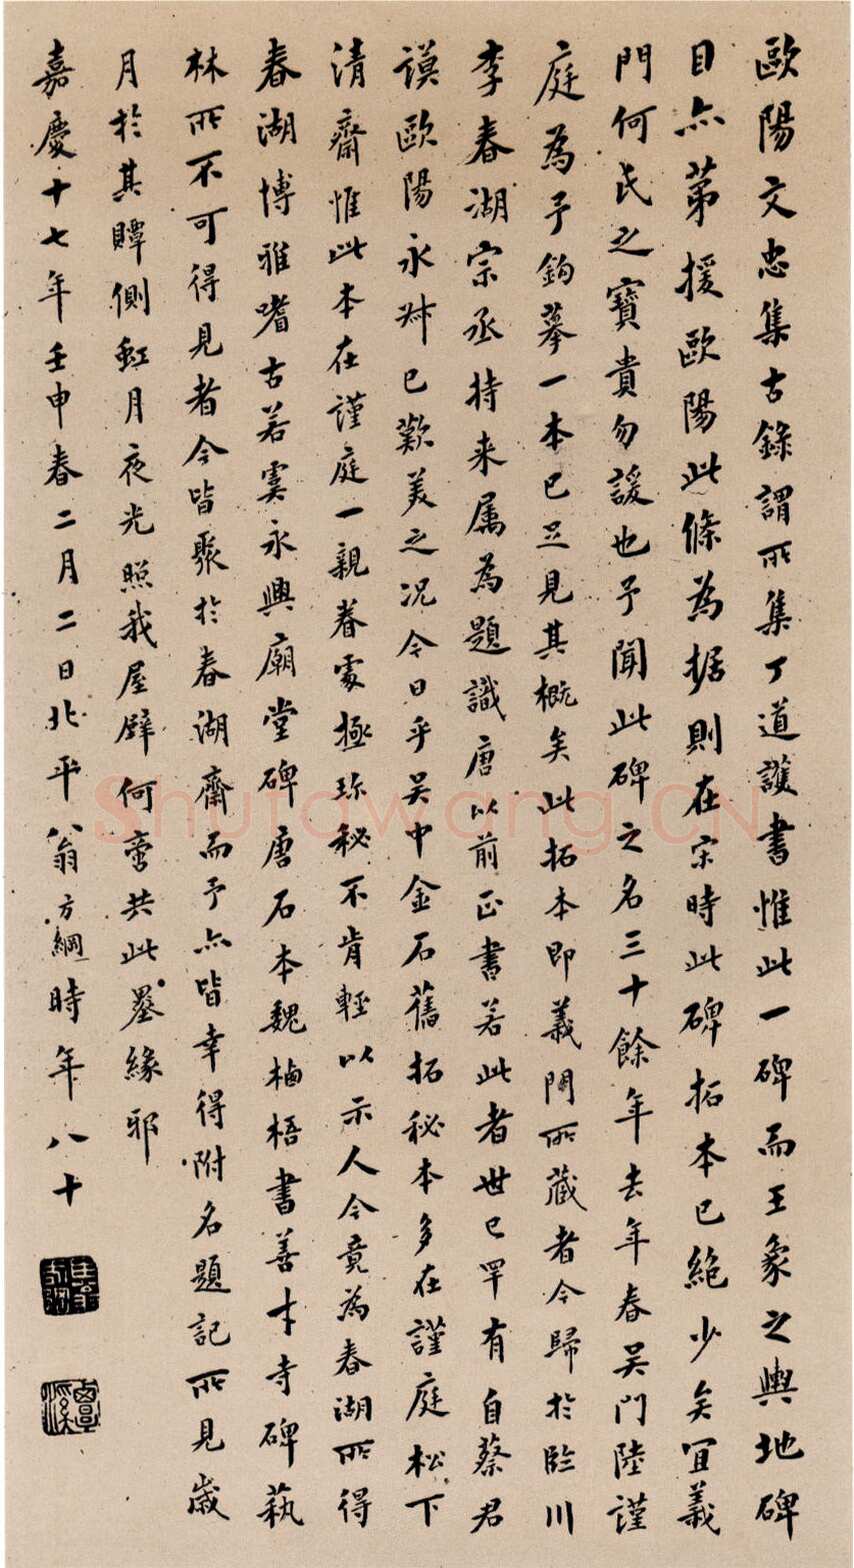 歐陽文忠集古錄謂所集丁道護書惟此一碑而王象之輿地碑
目亦第援歐陽此條為据則在宋時此碑拓本已絕少矣宜義
門何氏之寶貴勿諼也予聞此碑之名三十餘年去年春吴門陸謹
庭為予鈎摹一本已足見其概矣此拓本即義門所藏者今歸於臨川
李春湖宗丞持来属為題識唐以前正書若此者世已罕有自蔡君
謨歐陽永叔已歎美之况今日乎吴中金石舊拓秘本多在謹庭松下
清齋惟此本在謹庭一親眷處極珍秘不肯輕以示人今竟為春湖所得
春湖博雅嗜古若虞永興廟堂碑唐石本魏栖梧書善才寺碑蓺
林所不可得見者今皆聚於春湖齋而予亦皆幸得附名題記所見歲
月於其贉側虹月夜光照我屋壁何啻共此墨緣邪
嘉慶十七年壬申春二月二日北平翁方綱時年八十
覃溪
Shufawang.CN